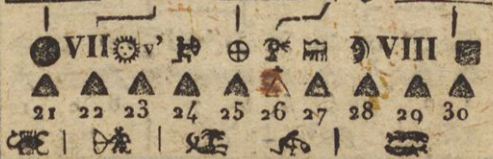 VII v' VIII
21 22 23 24 25 26 27 28 29 30